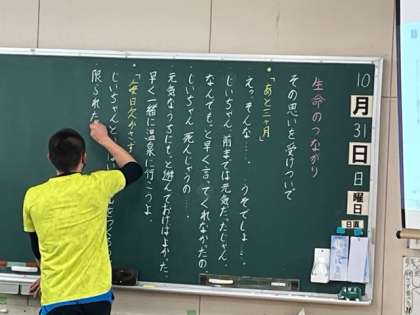 10
月
31
日
日
曜日
日直
生命のつながり
その思いを受けついで
・「あと三ヶ月」
えっ そんな…。 うそでしょ…。
じいちゃん、前までは元気だったじゃん、
なんでもっと早く言ってくれなかたの
じいちゃん 死んじゃうの…。
元気なうちにもっと遊んでおけばよかった。
早く一緒に温泉に行こうよ。
・「毎日欠かさず
じいちゃんと
限られた